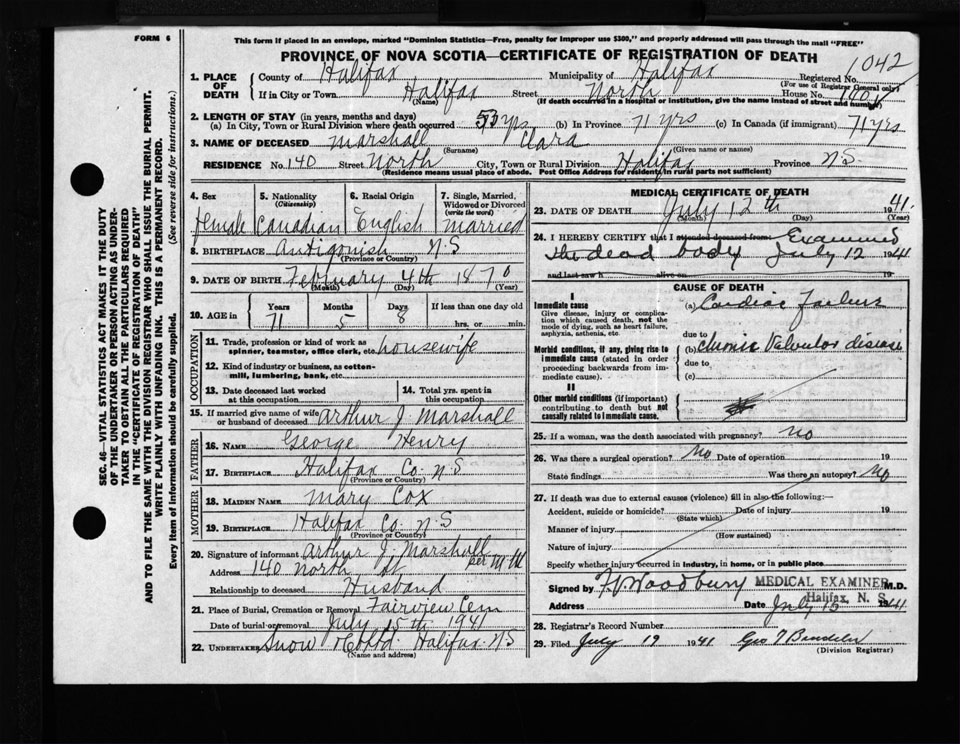 FORM 6
This form if placed in an envelope, marked "Dominion Statistics—Free, penalty for improper use $300," and properly addressed will pass through the mail "FREE"
PROVINCE OF NOVA SCOTIA—CERTIFICATE OF REGISTRATION OF DEATH
1042
1. PLACE OF DEATH
County of Halifax Municipality of Halifax Registered No.
(For use of Registrar General only)
If in City or Town Halifax Street North House No. 140
(Name) (If death occurred in a hospital or institution, give the name instead of street and number)
2. LENGTH OF STAY (in years, months and days)
(a) In City, Town or Rural Division where death occurred 53 yrs (b) In Province 71 yrs (c) In Canada (if immigrant) 71 yrs
3. NAME OF DECEASED Marshall Clara
(Surname) (Given name or names)
RESIDENCE No. 140 Street North City, Town or Rural Division Halifax Province N.S.
(Residence means usual place of abode. Post Office Address for residents in rural parts not sufficient)
4. Sex Female
5. Nationality (Citizenship) Canadian
6. Racial Origin English
7. Single, Married, Widowed or Divorced (write the word) Married
8. BIRTHPLACE Antigonish N.S
(Province or Country)
9. DATE OF BIRTH February 4th 1870
(Month) (Day) (Year)
10. AGE in Years 71 Months 5 Days 8 If less than one day old hrs. or min.
OCCUPATION
11. Trade, profession or kind of work as spinner, teamster, office clerk, etc. housewife
12. Kind of industry or business, as cotton-mill, lumbering, bank, etc.
13. Date deceased last worked at this occupation
14. Total yrs. spent in this occupation
15. If married give name of wife or husband of deceased Arthur J. Marshall
FATHER
16. Name George Henry
17. Birthplace Halifax Co. N.S
(Province or Country)
MOTHER
18. Maiden Name Mary Cox
19. Birthplace Halifax Co. N.S
(Province or Country)
20. Signature of informant Arthur J. Marshall
per
Address 140 North St
Relationship to deceased Husband
21. Place of Burial, Cremation or Removal Fairview Cem
Date of burial or removal July 15th 1941
22. Undertaker Snow & Co Ltd. Halifax N.S
(Name and address)
MEDICAL CERTIFICATE OF DEATH
23. DATE OF DEATH July 12th 1941
(Month) (Day) (Year)
24. I HEREBY CERTIFY that I attended deceased from Examined
the dead body July 12 1941
and last saw h alive on 19
CAUSE OF DEATH
I
Immediate cause
Give disease, injury or complication which caused death, not the mode of dying, such as heart failure, asphyxia, asthenia, etc.
(a) Cardiac Failure
due to
Morbid conditions, if any, giving rise to immediate cause (stated in order proceeding backwards from immediate cause).
(b) Chronic Valvular disease
due to
(c)
II
Other morbid conditions (if important) contributing to death but not causally related to immediate cause.
25. If a woman, was the death associated with pregnancy? No
26. Was there a surgical operation? No Date of operation 19
State findings Was there an autopsy? No
27. If death was due to external causes (violence) fill in also the following:—
Accident, suicide or homicide? Date of injury 19
(State which)
Manner of injury
(How sustained)
Nature of injury
Specify whether injury occurred in industry, in home, or in public place
Signed by Woodbury MEDICAL EXAMINER M.D.
Halifax, N. S.
Address Date July 15 1941
28. Registrar's Record Number
29. Filed July 19 1941 Geo
(Division Registrar)
SEC. 46—VITAL STATISTICS ACT MAKES IT THE DUTY
OF THE UNDERTAKER OR PERSON ACTING AS UNDER-
TAKER TO OBTAIN ALL THE PARTICULARS REQUIRED
IN THE "CERTIFICATE OF REGISTRATION OF DEATH"
AND TO FILE THE SAME WITH THE DIVISION REGISTRAR WHO SHALL ISSUE THE BURIAL PERMIT.
WRITE PLAINLY WITH UNFADING INK. THIS IS A PERMANENT RECORD.
Every item of information should be carefully supplied. (See reverse side for instructions.)